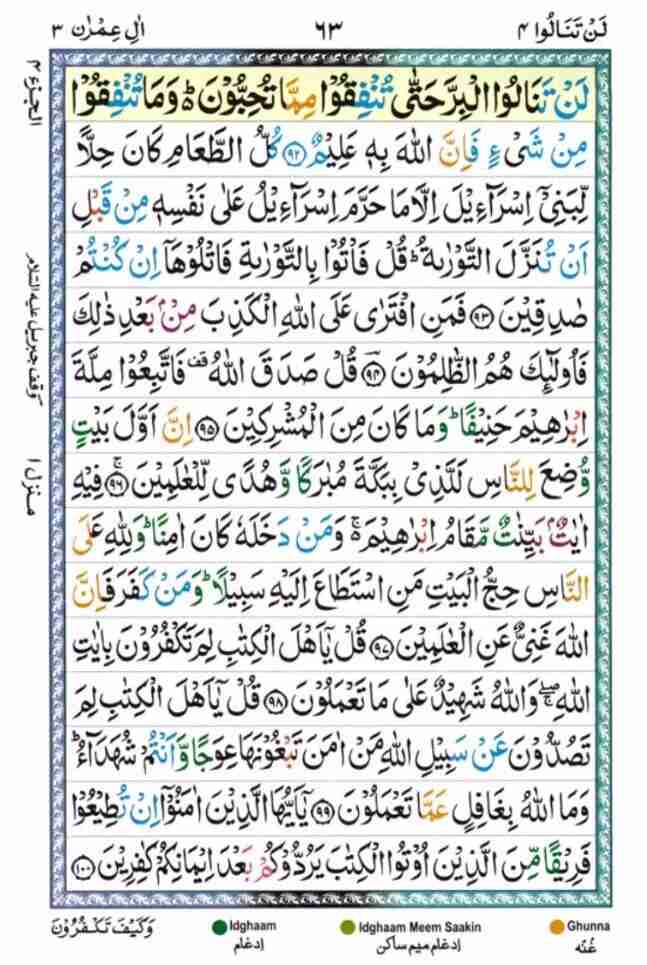 لَنْ تَنَالُوا ٤ ٦٣ اٰلِ عِمْرٰن ٣
لَنْ تَنَالُوا الْبِرَّ حَتّٰى تُنْفِقُوْا مِمَّا تُحِبُّوْنَ ؕ وَمَا تُنْفِقُوْا
مِنْ شَیْءٍ فَاِنَّ اللّٰهَ بِهٖ عَلِیْمٌ ﴿۹۲﴾ كُلُّ الطَّعَامِ كَانَ حِلًّا
لِّبَنِیْۤ اِسْرَآءِیْلَ اِلَّا مَا حَرَّمَ اِسْرَآءِیْلُ عَلٰى نَفْسِهٖ مِنْ قَبْلِ
اَنْ تُنَزَّلَ التَّوْرٰىةُ ؕ قُلْ فَاْتُوْا بِالتَّوْرٰىةِ فَاتْلُوْهَاۤ اِنْ كُنْتُمْ
صٰدِقِیْنَ ﴿۹۳﴾ فَمَنِ افْتَرٰى عَلَى اللّٰهِ الْكَذِبَ مِنْۢ بَعْدِ ذٰلِكَ
فَاُولٰٓىِٕكَ هُمُ الظّٰلِمُوْنَ ﴿۹۴﴾ قُلْ صَدَقَ اللّٰهُ ۫ فَاتَّبِعُوْا مِلَّةَ
اِبْرٰهِیْمَ حَنِیْفًا ؕ وَمَا كَانَ مِنَ الْمُشْرِكِیْنَ ﴿۹۵﴾ اِنَّ اَوَّلَ بَیْتٍ
وُّضِعَ لِلنَّاسِ لَلَّذِیْ بِبَكَّةَ مُبٰرَكًا وَّهُدًى لِّلْعٰلَمِیْنَ ﴿۹۶﴾ۚ فِیْهِ
اٰیٰتٌۢ بَیِّنٰتٌ مَّقَامُ اِبْرٰهِیْمَ ۚ۬ وَمَنْ دَخَلَهٗ كَانَ اٰمِنًا ؕ وَلِلّٰهِ عَلَى
النَّاسِ حِجُّ الْبَیْتِ مَنِ اسْتَطَاعَ اِلَیْهِ سَبِیْلًا ؕ وَمَنْ كَفَرَ فَاِنَّ
اللّٰهَ غَنِیٌّ عَنِ الْعٰلَمِیْنَ ﴿۹۷﴾ قُلْ یٰۤاَهْلَ الْكِتٰبِ لِمَ تَكْفُرُوْنَ بِاٰیٰتِ
اللّٰهِ ۖۗ وَاللّٰهُ شَهِیْدٌ عَلٰى مَا تَعْمَلُوْنَ ﴿۹۸﴾ قُلْ یٰۤاَهْلَ الْكِتٰبِ لِمَ
تَصُدُّوْنَ عَنْ سَبِیْلِ اللّٰهِ مَنْ اٰمَنَ تَبْغُوْنَهَا عِوَجًا وَّاَنْتُمْ شُهَدَآءُ ؕ
وَمَا اللّٰهُ بِغَافِلٍ عَمَّا تَعْمَلُوْنَ ﴿۹۹﴾ یٰۤاَیُّهَا الَّذِیْنَ اٰمَنُوْۤا اِنْ تُطِیْعُوْا
فَرِیْقًا مِّنَ الَّذِیْنَ اُوْتُوا الْكِتٰبَ یَرُدُّوْكُمْ بَعْدَ اِیْمَانِكُمْ كٰفِرِیْنَ ﴿۱۰۰﴾
الجزء ٤
وقف جبریل علیه السلام
منزل ١
Ghunna
غُنّه
Idghaam Meem Saakin
اِدغام میم ساکن
Idghaam
اِدغام
وَكَیْفَ تَكْفُرُوْنَ